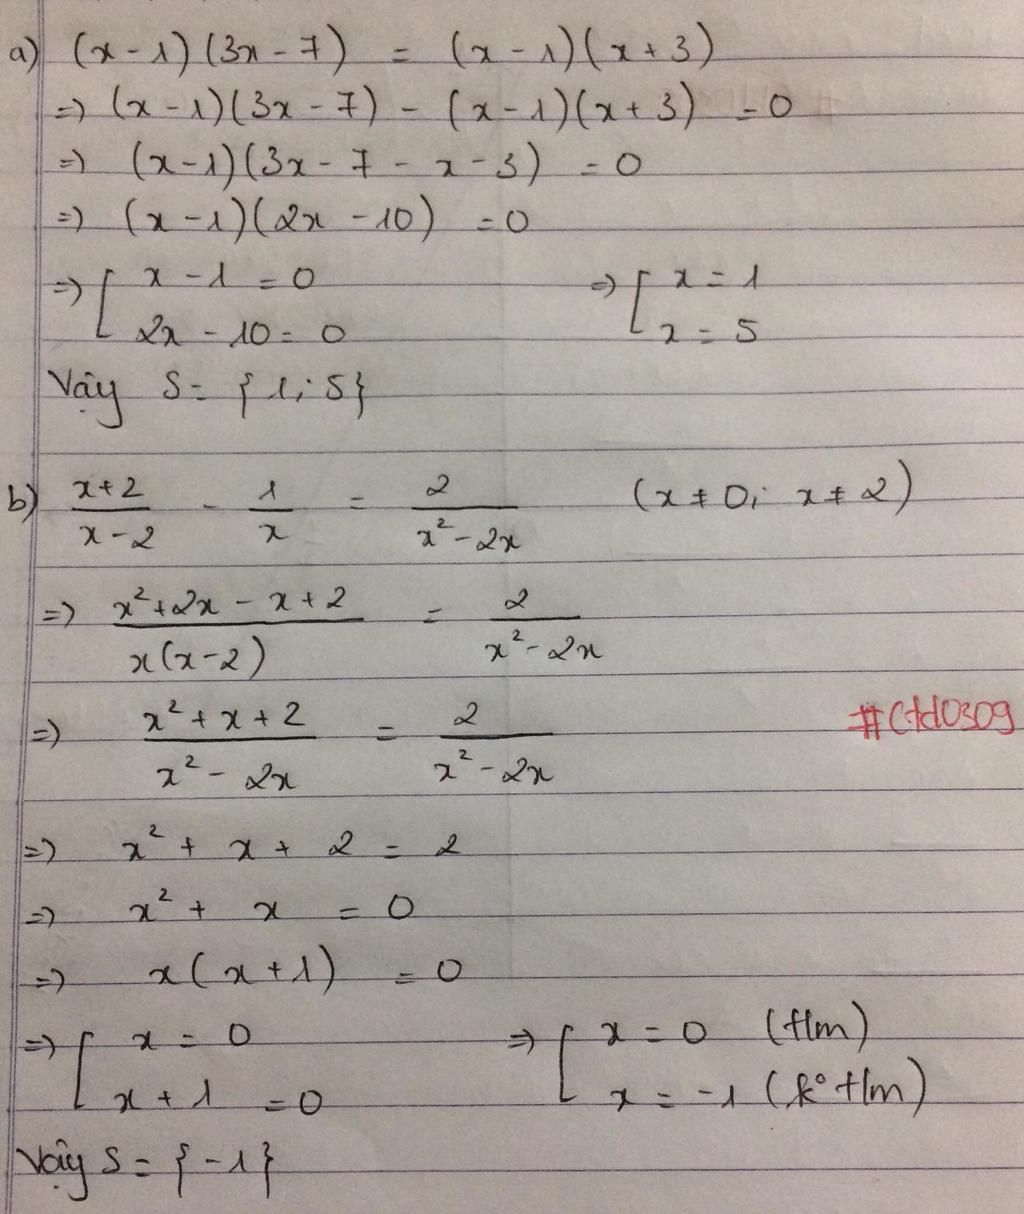 a) (x - 1)(3x - 7) = (x - 1)(x + 3)
=> (x - 1)(3x - 7) - (x - 1)(x + 3) = 0
=> (x - 1)(3x - 7 - x - 3) = 0
=> (x - 1)(2x - 10) = 0
=> [ x - 1 = 0 => [ x = 1
2x - 10 = 0 x = 5
Vậy S = {1; 5}
b) (x+2)/(x-2) - 1/x = 2/(x² - 2x) (x ≠ 0; x ≠ 2)
=> (x² + 2x - x + 2)/(x(x-2)) = 2/(x² - 2x)
=> (x² + x + 2)/(x² - 2x) = 2/(x² - 2x)
#Ctd0309
=> x² + x + 2 = 2
=> x² + x = 0
=> x(x + 1) = 0
=> [ x = 0 => [ x = 0 (t/m)
x + 1 = 0 x = -1 (k° t/m)
Vậy S = {-1}